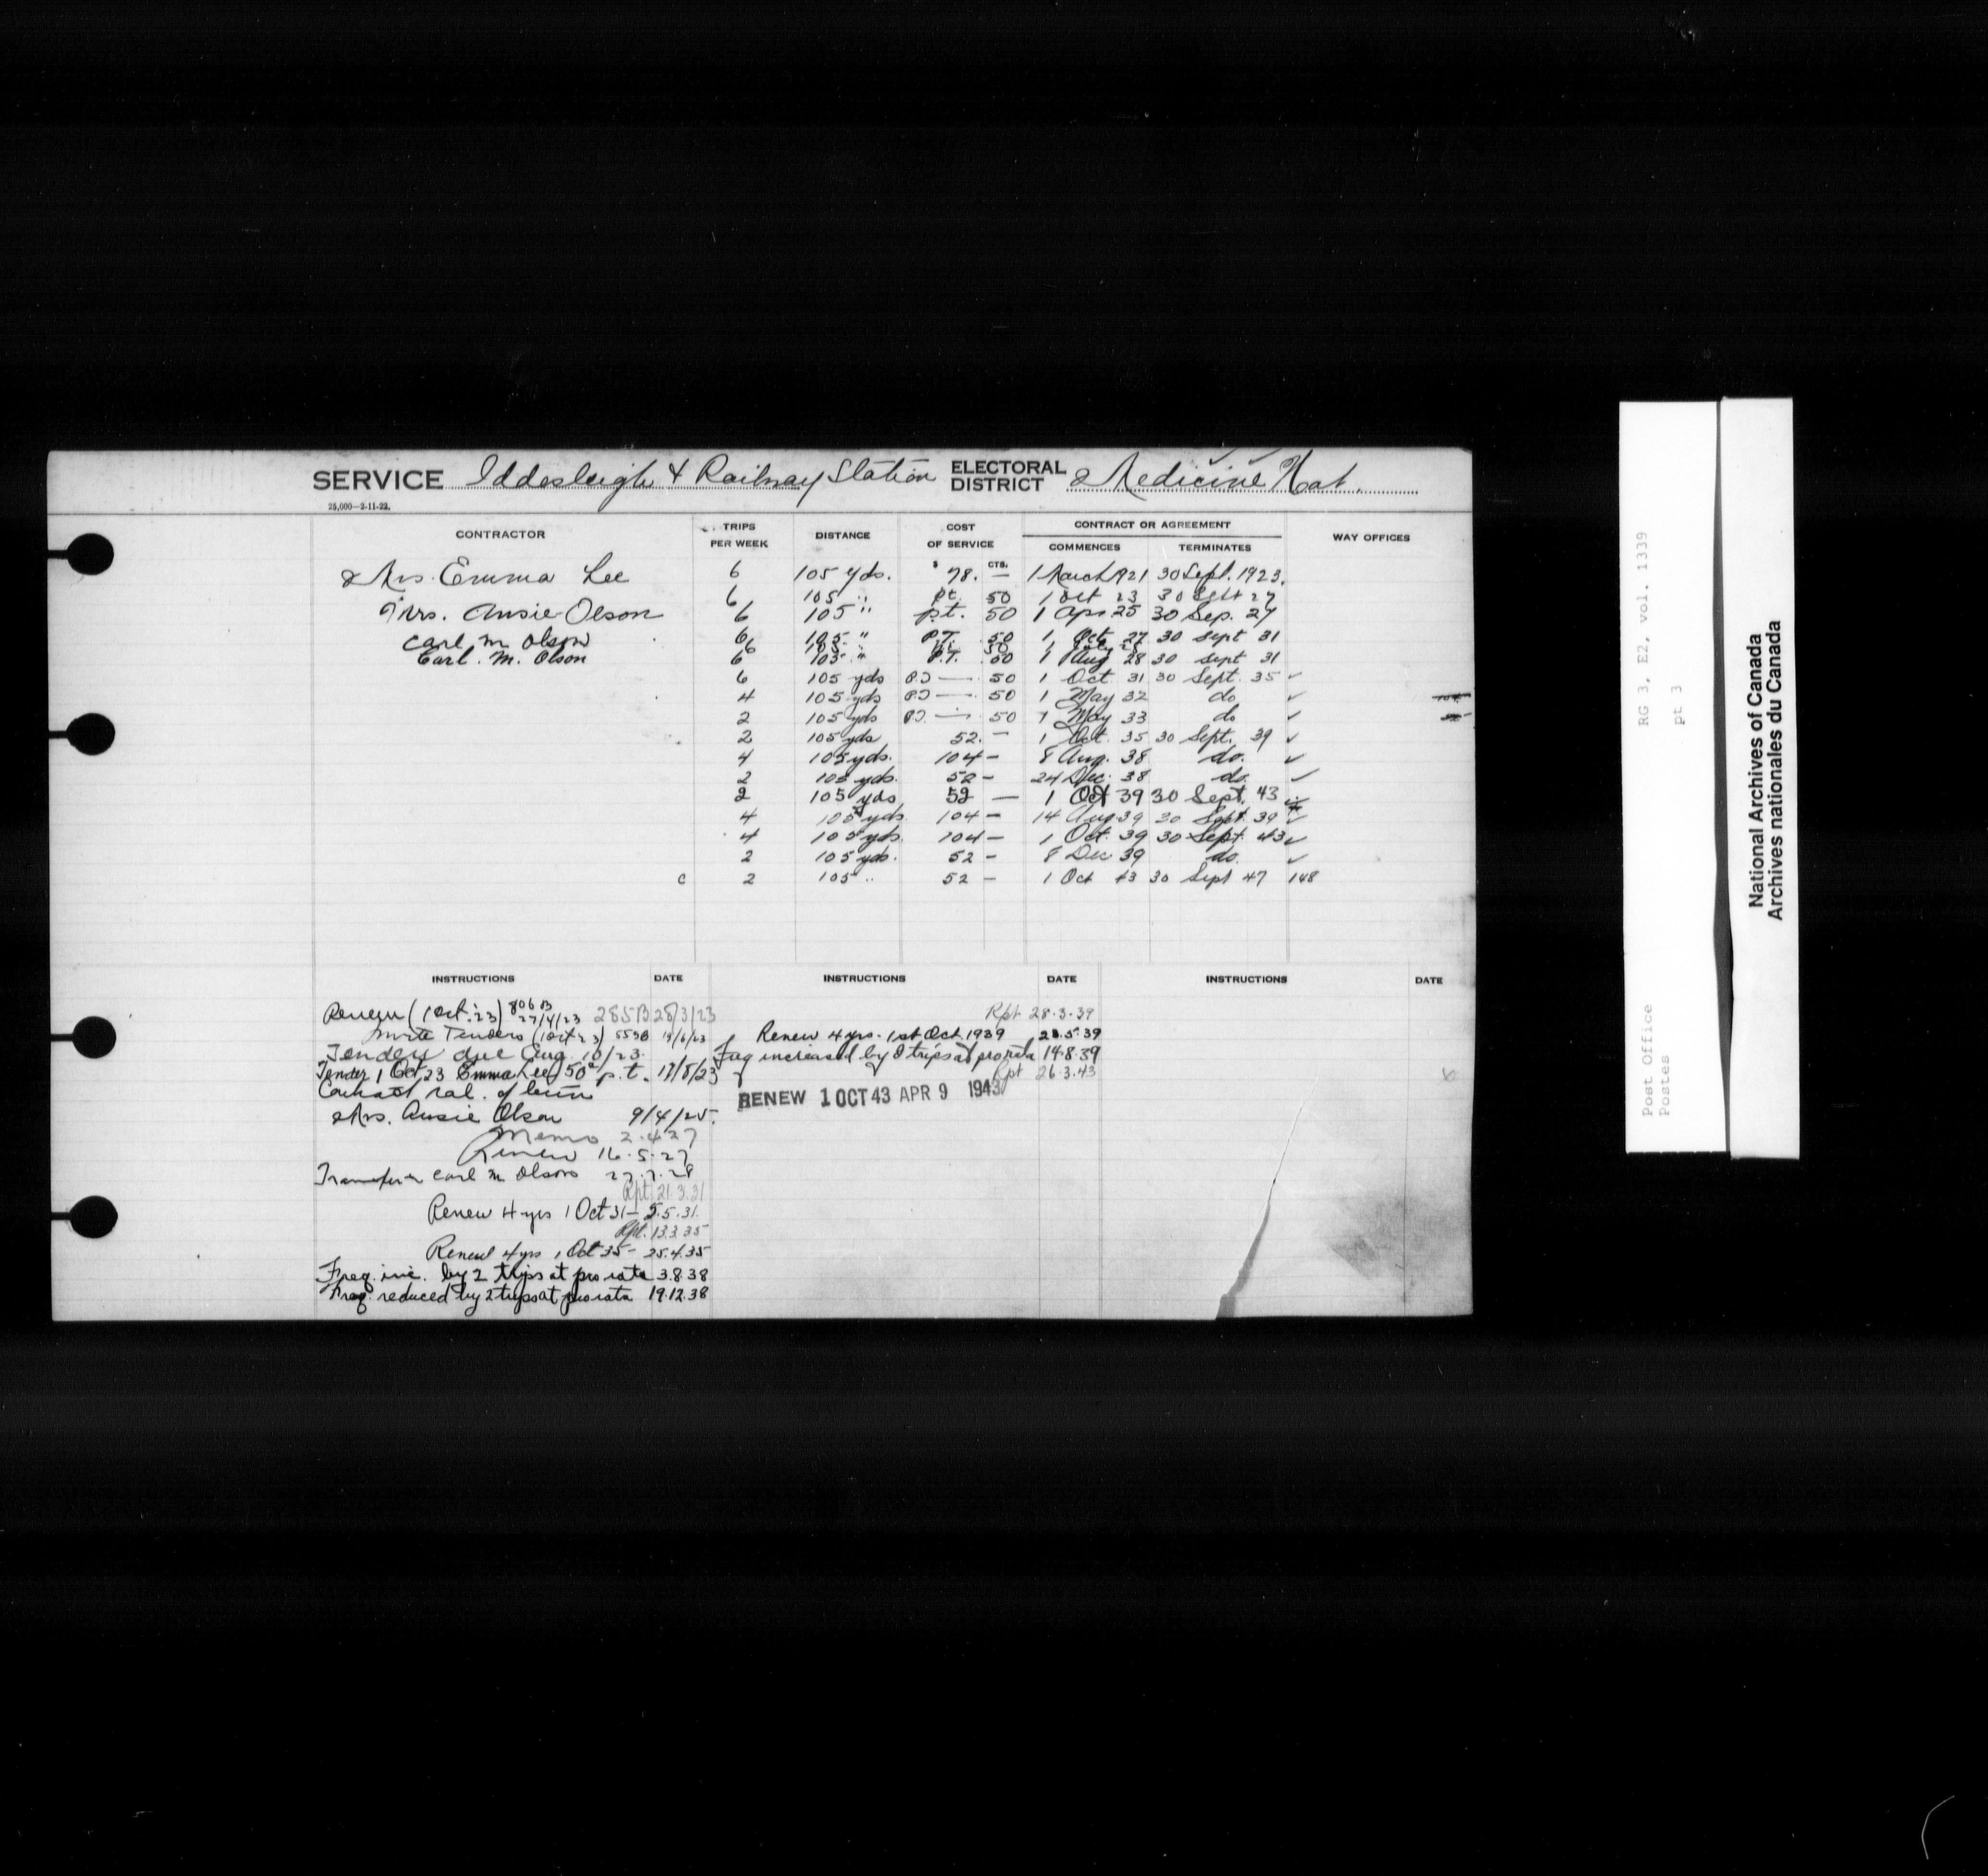 SERVICE Iddesleigh & Railway Station ELECTORAL DISTRICT Medicine Hat.
25,000—2-11-22.
CONTRACTOR TRIPS PER WEEK DISTANCE COST OF SERVICE CONTRACT OR AGREEMENT WAY OFFICES
$ CTS. COMMENCES TERMINATES
Mrs. Emma Lee 6 105 yds. 78. — 1 March 1921 30 Sept. 1923.
6 105 " pt. 50 1 Oct 23 30 Sept 27
Mrs. Ausie Olson 6 105 " pt. 50 1 Apr 25 30 Sep. 27
Carl M Olson 6 105 " P.T. 50 1 Oct 27 30 Sept 31
6 105 " 50 July 28
Carl. M. Olson 6 105 " P.T. 50 1 Aug 28 30 Sept 31
6 105 yds — 50 1 Oct 31 30 Sept. 35 ✓
4 105 yds — 50 1 May 32 do ✓
2 105 yds — 50 1 May 33 do ✓
2 105 yds 52. — 1 Oct. 35 30 Sept. 39 ✓
4 105 yds. 104 — 8 Aug. 38 do. ✓
2 105 yds. 52 — 24 Dec. 38 do. ✓
2 105 yds 52 — 1 Oct 39 30 Sept. 43
4 105 yds. 104 — 14 Aug 39 30 Sept. 39 ✓
4 105 yds. 104 — 1 Oct. 39 30 Sept. 43 ✓
2 105 yds. 52 — 8 Dec 39 do. ✓
C 2 105 " 52 — 1 Oct 43 30 Sept 47 148
INSTRUCTIONS DATE INSTRUCTIONS DATE INSTRUCTIONS DATE
Renew (1 Oct. 23) 806 B 27/4/23 285B 28/3/23
Invite Tenders (1 Oct 23) 553B 19/6/23
Tenders due Aug. 10/23.
Tender 1 Oct 23 Emma Lee 50¢ p.t. 17/8/23
Contract
Mrs. Ausie Olson 9/4/25.
Memo 2.4.27
Renew 16.5.27
Transfer Carl M Olson 27.7.28
Rpt 21.3.31
Renew 4 yrs 1 Oct 31 — 5.5.31.
Rpt. 13.3.35
Renew 4 yrs 1 Oct 35 — 25.4.35
Freq. inc. by 2 trips at pro rata 3.8.38
Freq. reduced by 2 trips at pro rata 19.12.38
Rpt 28-3-39
Renew 4 yrs. 1st Oct. 1939 23.5.39
Freq increased by 2 trips at pro rata 14.8.39
Rpt 26.3.43
RENEW 1 OCT 43 APR 9 1943
RG 3, E2, vol. 1339
pt 3
Post Office
Postes
National Archives of Canada
Archives nationales du Canada